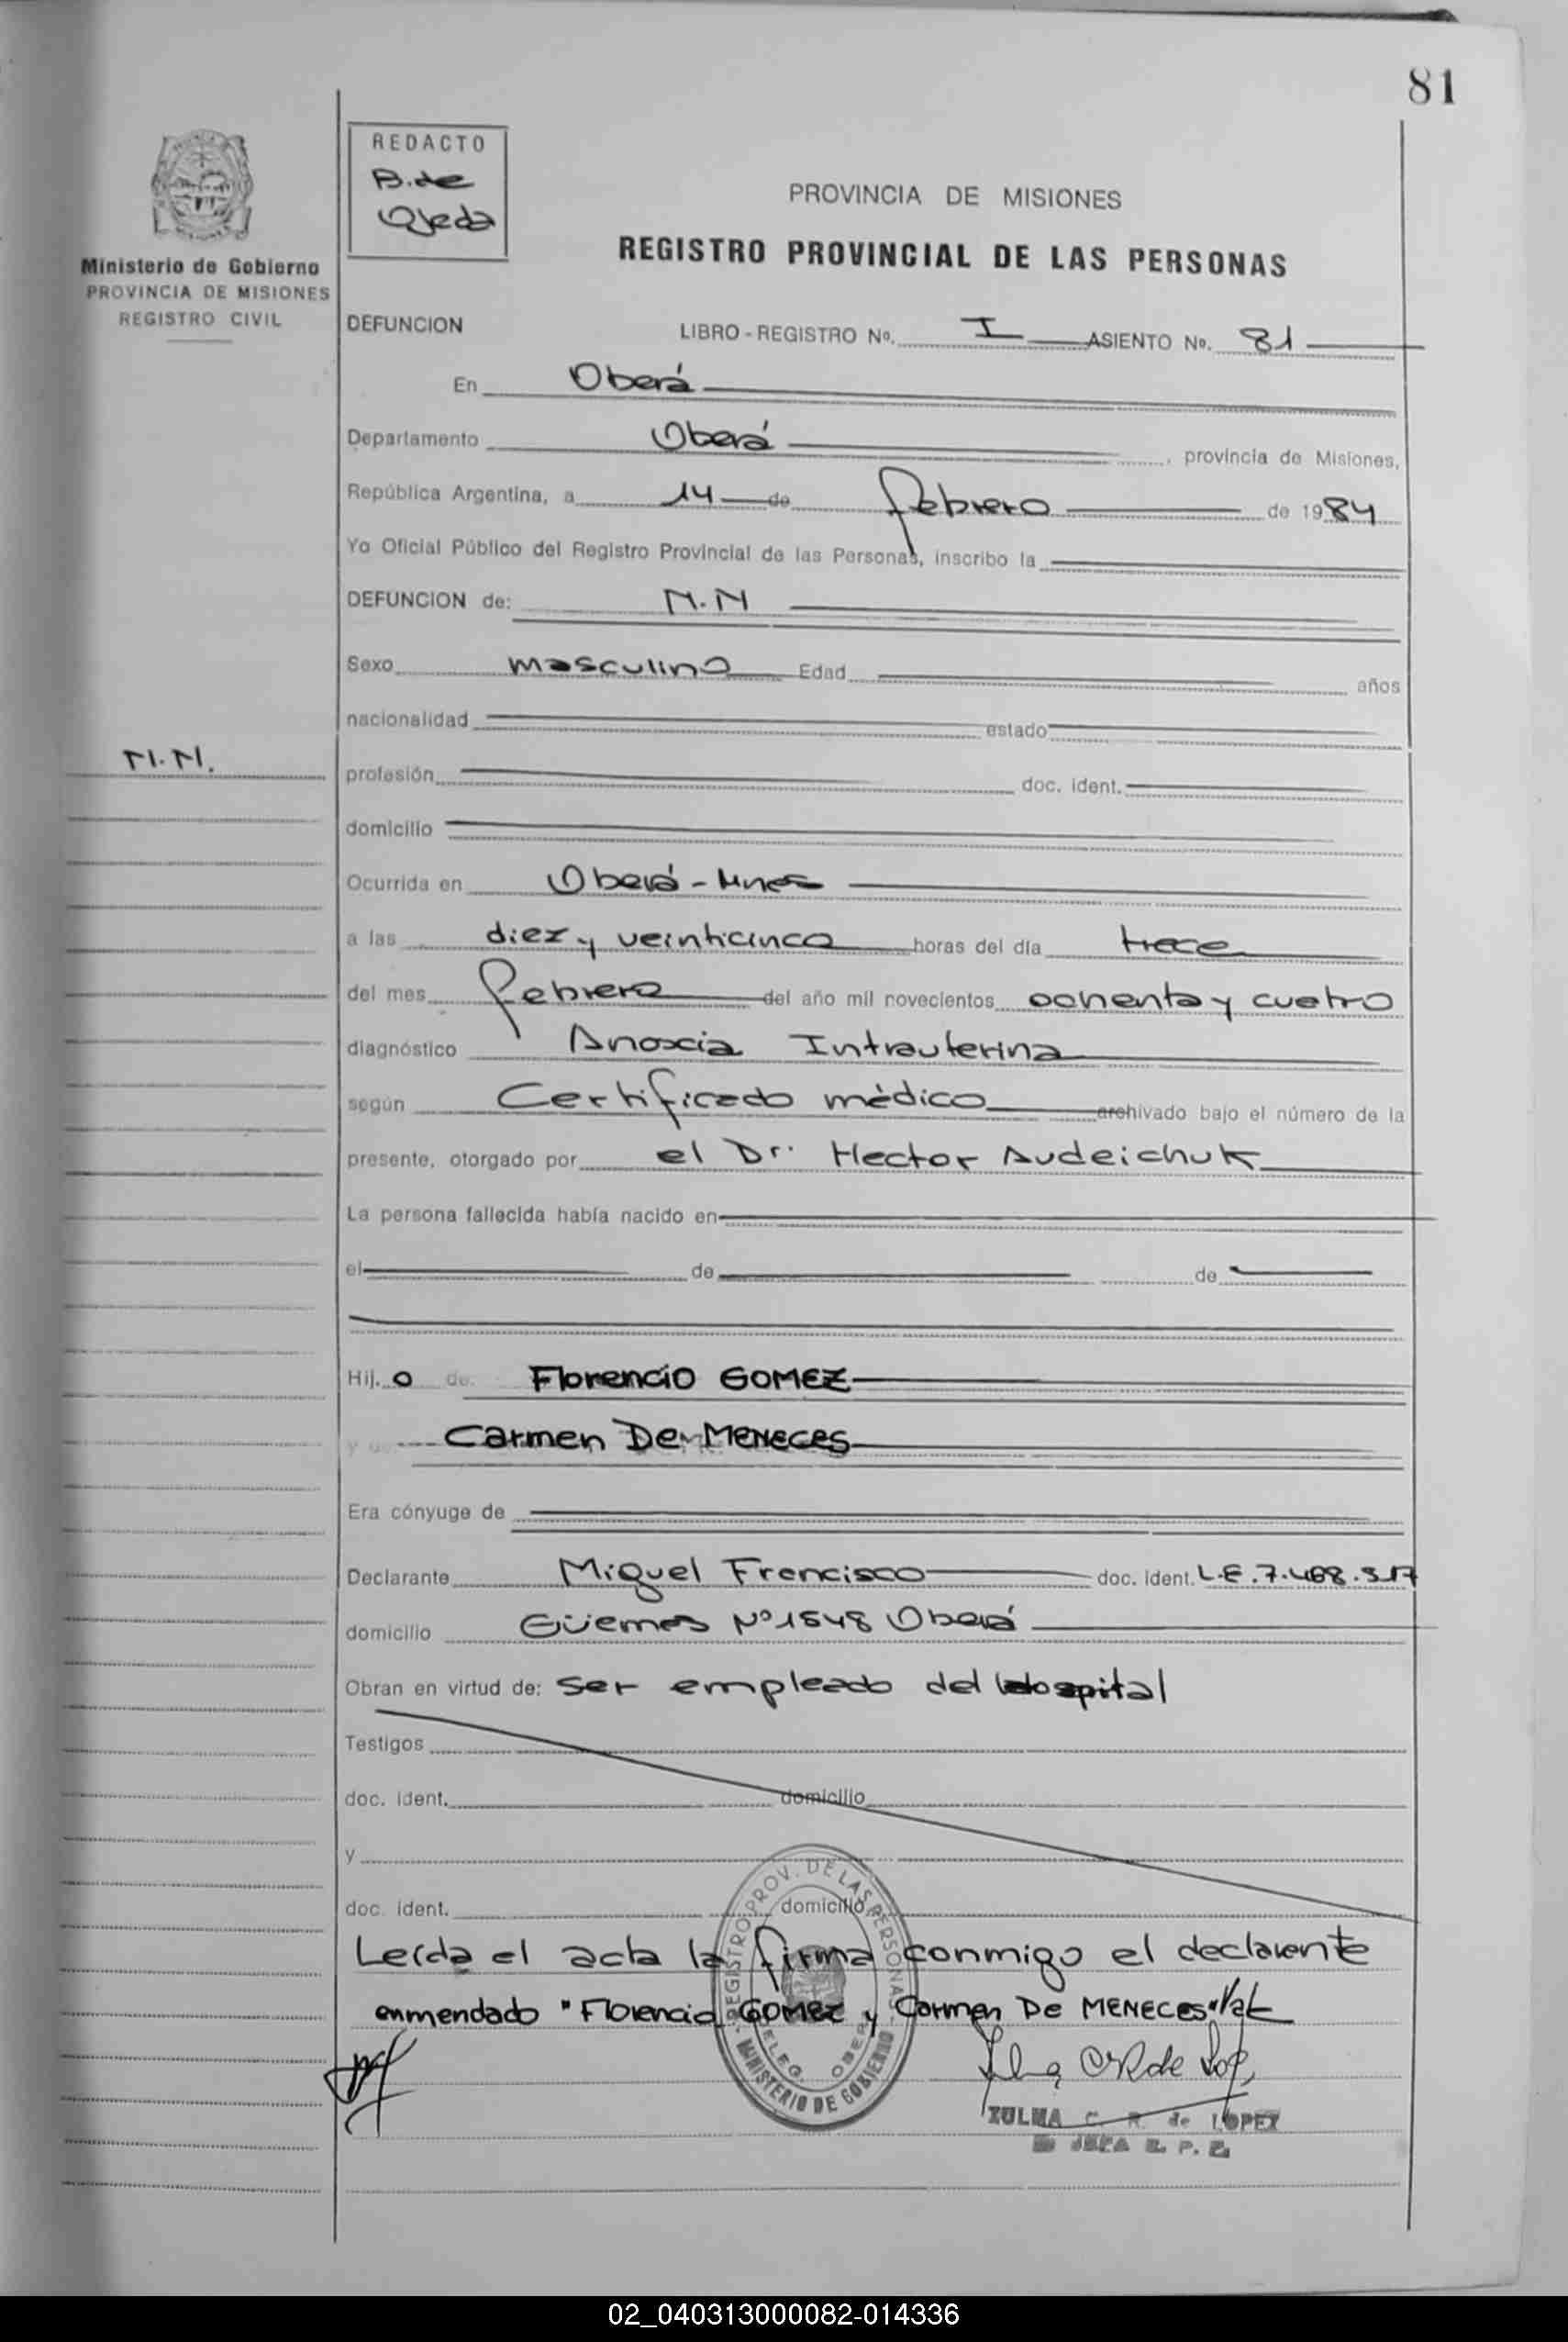 81
REDACTO
B. de
Ojeda
Ministerio de Gobierno
PROVINCIA DE MISIONES
REGISTRO CIVIL
PROVINCIA DE MISIONES
REGISTRO PROVINCIAL DE LAS PERSONAS
DEFUNCION LIBRO - REGISTRO Nº. I ASIENTO Nº. 81
En Oberá
Departamento Oberá, provincia de Misiones,
República Argentina, a 14 de febrero de 1984
Yo Oficial Público del Registro Provincial de las Personas, inscribo la
DEFUNCION de: N.N
Sexo masculino Edad años
nacionalidad estado
N.N.
profesión doc. ident.
domicilio
Ocurrida en Oberá - Mnes
a las diez y veinticinco horas del día trece
del mes febrero del año mil novecientos ochenta y cuatro
diagnóstico Anoxia Intrauterina
según Certificado médico archivado bajo el número de la
presente, otorgado por el Dr. Hector Audeichuk
La persona fallecida había nacido en
el de de
Hij. o de. Florencio GOMEZ
y de Carmen De MENECES
Era cónyuge de
Declarante Miguel Francisco doc. ident. L.E. 7.468.317
domicilio Güemes Nº 1548 Oberá
Obran en virtud de: ser empleado del hospital
Testigos
doc. ident. domicilio
y
doc. ident. domicilio
Leída el acta la firma conmigo el declarante
enmendado "Florencio GOMEZ y Carmen De MENECES" Vale
REGISTRO PROV. DE LAS PERSONAS
DELEG. OBERA
MINISTERIO DE GOBIERNO
ZULMA C. R. de LOPEZ
JEFA R. P. P.
02_040313000082-014336